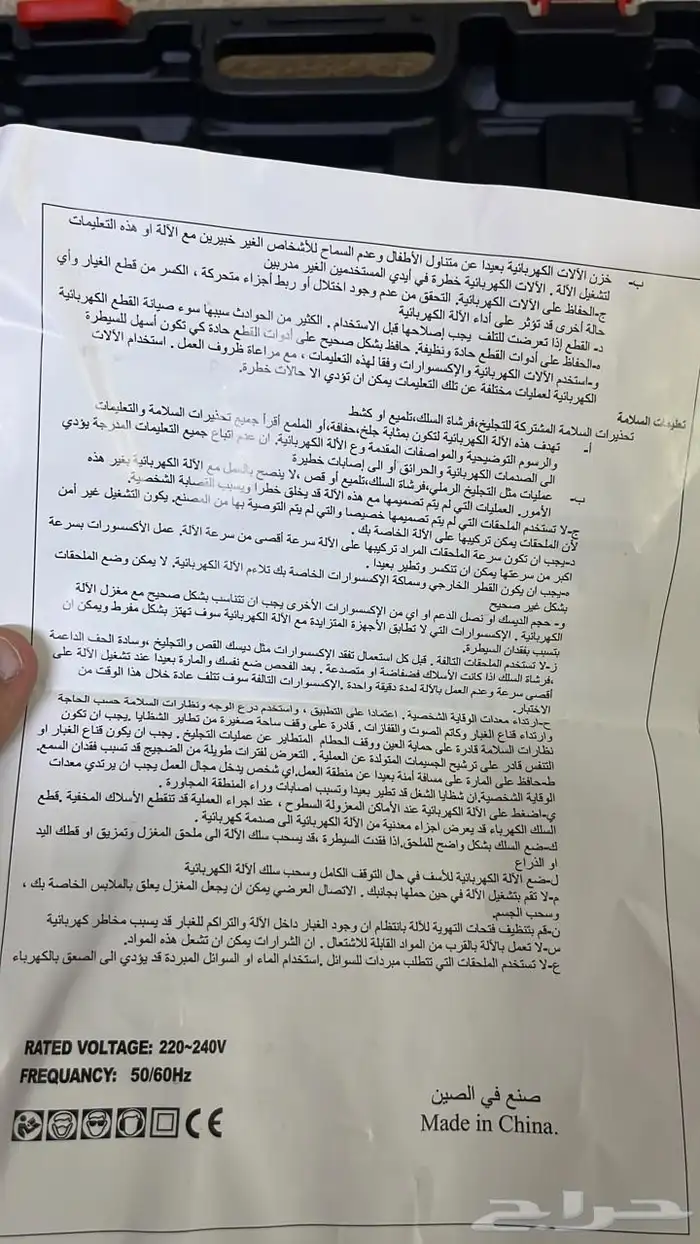 ب- خزن الآلات الكهربائية بعيدا عن متناول الأطفال وعدم السماح للأشخاص الغير خبيرين مع الآلة او هذه التعليمات
لتشغيل الآلة . الآلات الكهربائية خطرة في أيدي المستخدمين الغير مدربين
ج-الحفاظ على الآلات الكهربائية. التحقق من عدم وجود اختلال أو ربط أجزاء متحركة ، الكسر من قطع الغيار وأي
حالة أخرى قد تؤثر على أداء الآلة الكهربائية
د- القطع إذا تعرضت للتلف يجب إصلاحها قبل الاستخدام . الكثير من الحوادث سببها سوء صيانة القطع الكهربائية
ه-الحفاظ على أدوات القطع حادة ونظيفة. حافظ بشكل صحيح على أدوات القطع حادة كي تكون أسهل للسيطرة
و-استخدم الآلات الكهربائية والإكسسوارات وفقا لهذه التعليمات ، مع مراعاة ظروف العمل . استخدام الآلات
الكهربائية لعمليات مختلفة عن تلك التعليمات يمكن ان تؤدي الا حالات خطرة.
تعليمات السلامة
تحذيرات السلامة المشتركة للتجليخ،فرشاة السلك،تلميع او كشط
أ- تهدف هذه الآلة الكهربائية لتكون بمثابة جلخ،حفافة،أو الملمع أقرأ جميع تحذيرات السلامة والتعليمات
والرسوم التوضيحية والمواصفات المقدمة وع الآلة الكهربائية. ان عدم اتباع جميع التعليمات المدرجة يؤدي
الى الصدمات الكهربائية والحرائق أو الى إصابات خطيرة
ب- عمليات مثل التجليخ الرملي،فرشاة السلك،تلميع أو قص ،لا ينصح بالعمل مع الآلة الكهربائية بغير هذه
الأمور. العمليات التي لم يتم تصميمها مع هذه الآلة قد يخلق خطرا ويسبب الإصابة الشخصية.
ج-لا تستخدم الملحقات التي لم يتم تصميمها خصيصا والتي لم يتم التوصية بها من المصنع. يكون التشغيل غير أمن
لأن الملحقات يمكن تركيبها على الآلة الخاصة بك .
د-يجب ان تكون سرعة الملحقات المراد تركيبها على الآلة سرعة أقصى من سرعة الآلة. عمل الأكسسورات بسرعة
اكبر من سرعتها يمكن ان تنكسر وتطير بعيدا .
ه-يجب ان يكون القطر الخارجي وسماكة الإكسسوارات الخاصة بك تلاءم الآلة الكهربائية. لا يمكن وضع الملحقات
بشكل غير صحيح
و- حجم الديسك او نصل الدعم او اي من الإكسسوارات الأخرى يجب ان تتناسب بشكل صحيح مع مغزل الآلة
الكهربائية . الإكسسوارات التي لا تطابق الأجهزة المتزايدة مع الآلة الكهربائية سوف تهتز بشكل مفرط ويمكن ان
يتسبب بفقدان السيطرة.
ز-لا تستخدم الملحقات التالفة . قبل كل استعمال تفقد الإكسسوارات مثل ديسك القص والتجليخ ،وسادة الحف الداعمة
،فرشاة السلك اذا كانت الأسلاك فضفاضة او متصدعة . بعد الفحص ضع نفسك والمارة بعيدا عند تشغيل الآلة على
أقصى سرعة وعدم العمل بالآلة لمدة دقيقة واحدة .الإكسسوارات التالفة سوف تتلف عادة خلال هذا الوقت من
الاختبار.
ح-ارتداء معدات الوقاية الشخصية . اعتمادا على التطبيق ، واستخدم درع الوجه ونظارات السلامة حسب الحاجة
وارتداء قناع الغبار وكاتم الصوت والقفازات . قادرة على وقف ساحة صغيرة من تطاير الشظايا .يجب ان تكون
نظارات السلامة قادرة على حماية العين ووقف الحطام المتطاير عن عمليات التجليخ . يجب ان يكون قناع الغبار او
التنفس قادر على ترشيح الجسيمات المتولدة عن العملية . التعرض لفترات طويلة من الضجيج قد تسبب فقدان السمع.
ط-حافظ على المارة على مسافة أمنة بعيدا عن منطقة العمل.اي شخص يدخل مجال العمل يجب ان يرتدي معدات
الوقاية الشخصية.ان شظايا الشغل قد تطير بعيدا وتسبب اصابات وراء المنطقة المجاورة .
ي-اضغط على الآلة الكهربائية عند الأماكن المعزولة السطوح ، عند اجراء العملية قد تنقطع الأسلاك المخفية .قطع
السلك الكهرباء قد يعرض اجزاء معدنية من الآلة الكهربائية الى صدمة كهربائية .
ك-ضع السلك بشكل واضح للملحق.اذا فقدت السيطرة ،قد يسحب سلك الآلة الى ملحق المغزل وتمزيق او قطك اليد
او الذراع
ل-ضع الآلة الكهربائية للأسف في حال التوقف الكامل وسحب سلك الآلة الكهربائية
م-لا تقم بتشغيل الآلة في حين حملها بجانبك . الاتصال العرضي يمكن ان يجعل المغزل يعلق بالملابس الخاصة بك ،
وسحب الجسم.
ن-قم بتنظيف فتحات التهوية للآلة بانتظام ان وجود الغبار داخل الآلة والتراكم للغبار قد يسبب مخاطر كهربائية
س-لا تعمل بالآلة بالقرب من المواد القابلة للاشتعال . ان الشرارات يمكن ان تشعل هذه المواد.
ع-لا تستخدم الملحقات التي تتطلب مبردات للسوائل .استخدام الماء او السوائل المبردة قد يؤدي الى الصعق بالكهرباء
RATED VOLTAGE: 220~240V
FREQUANCY: 50/60Hz
CE
صنع في الصين
Made in China.
حراج